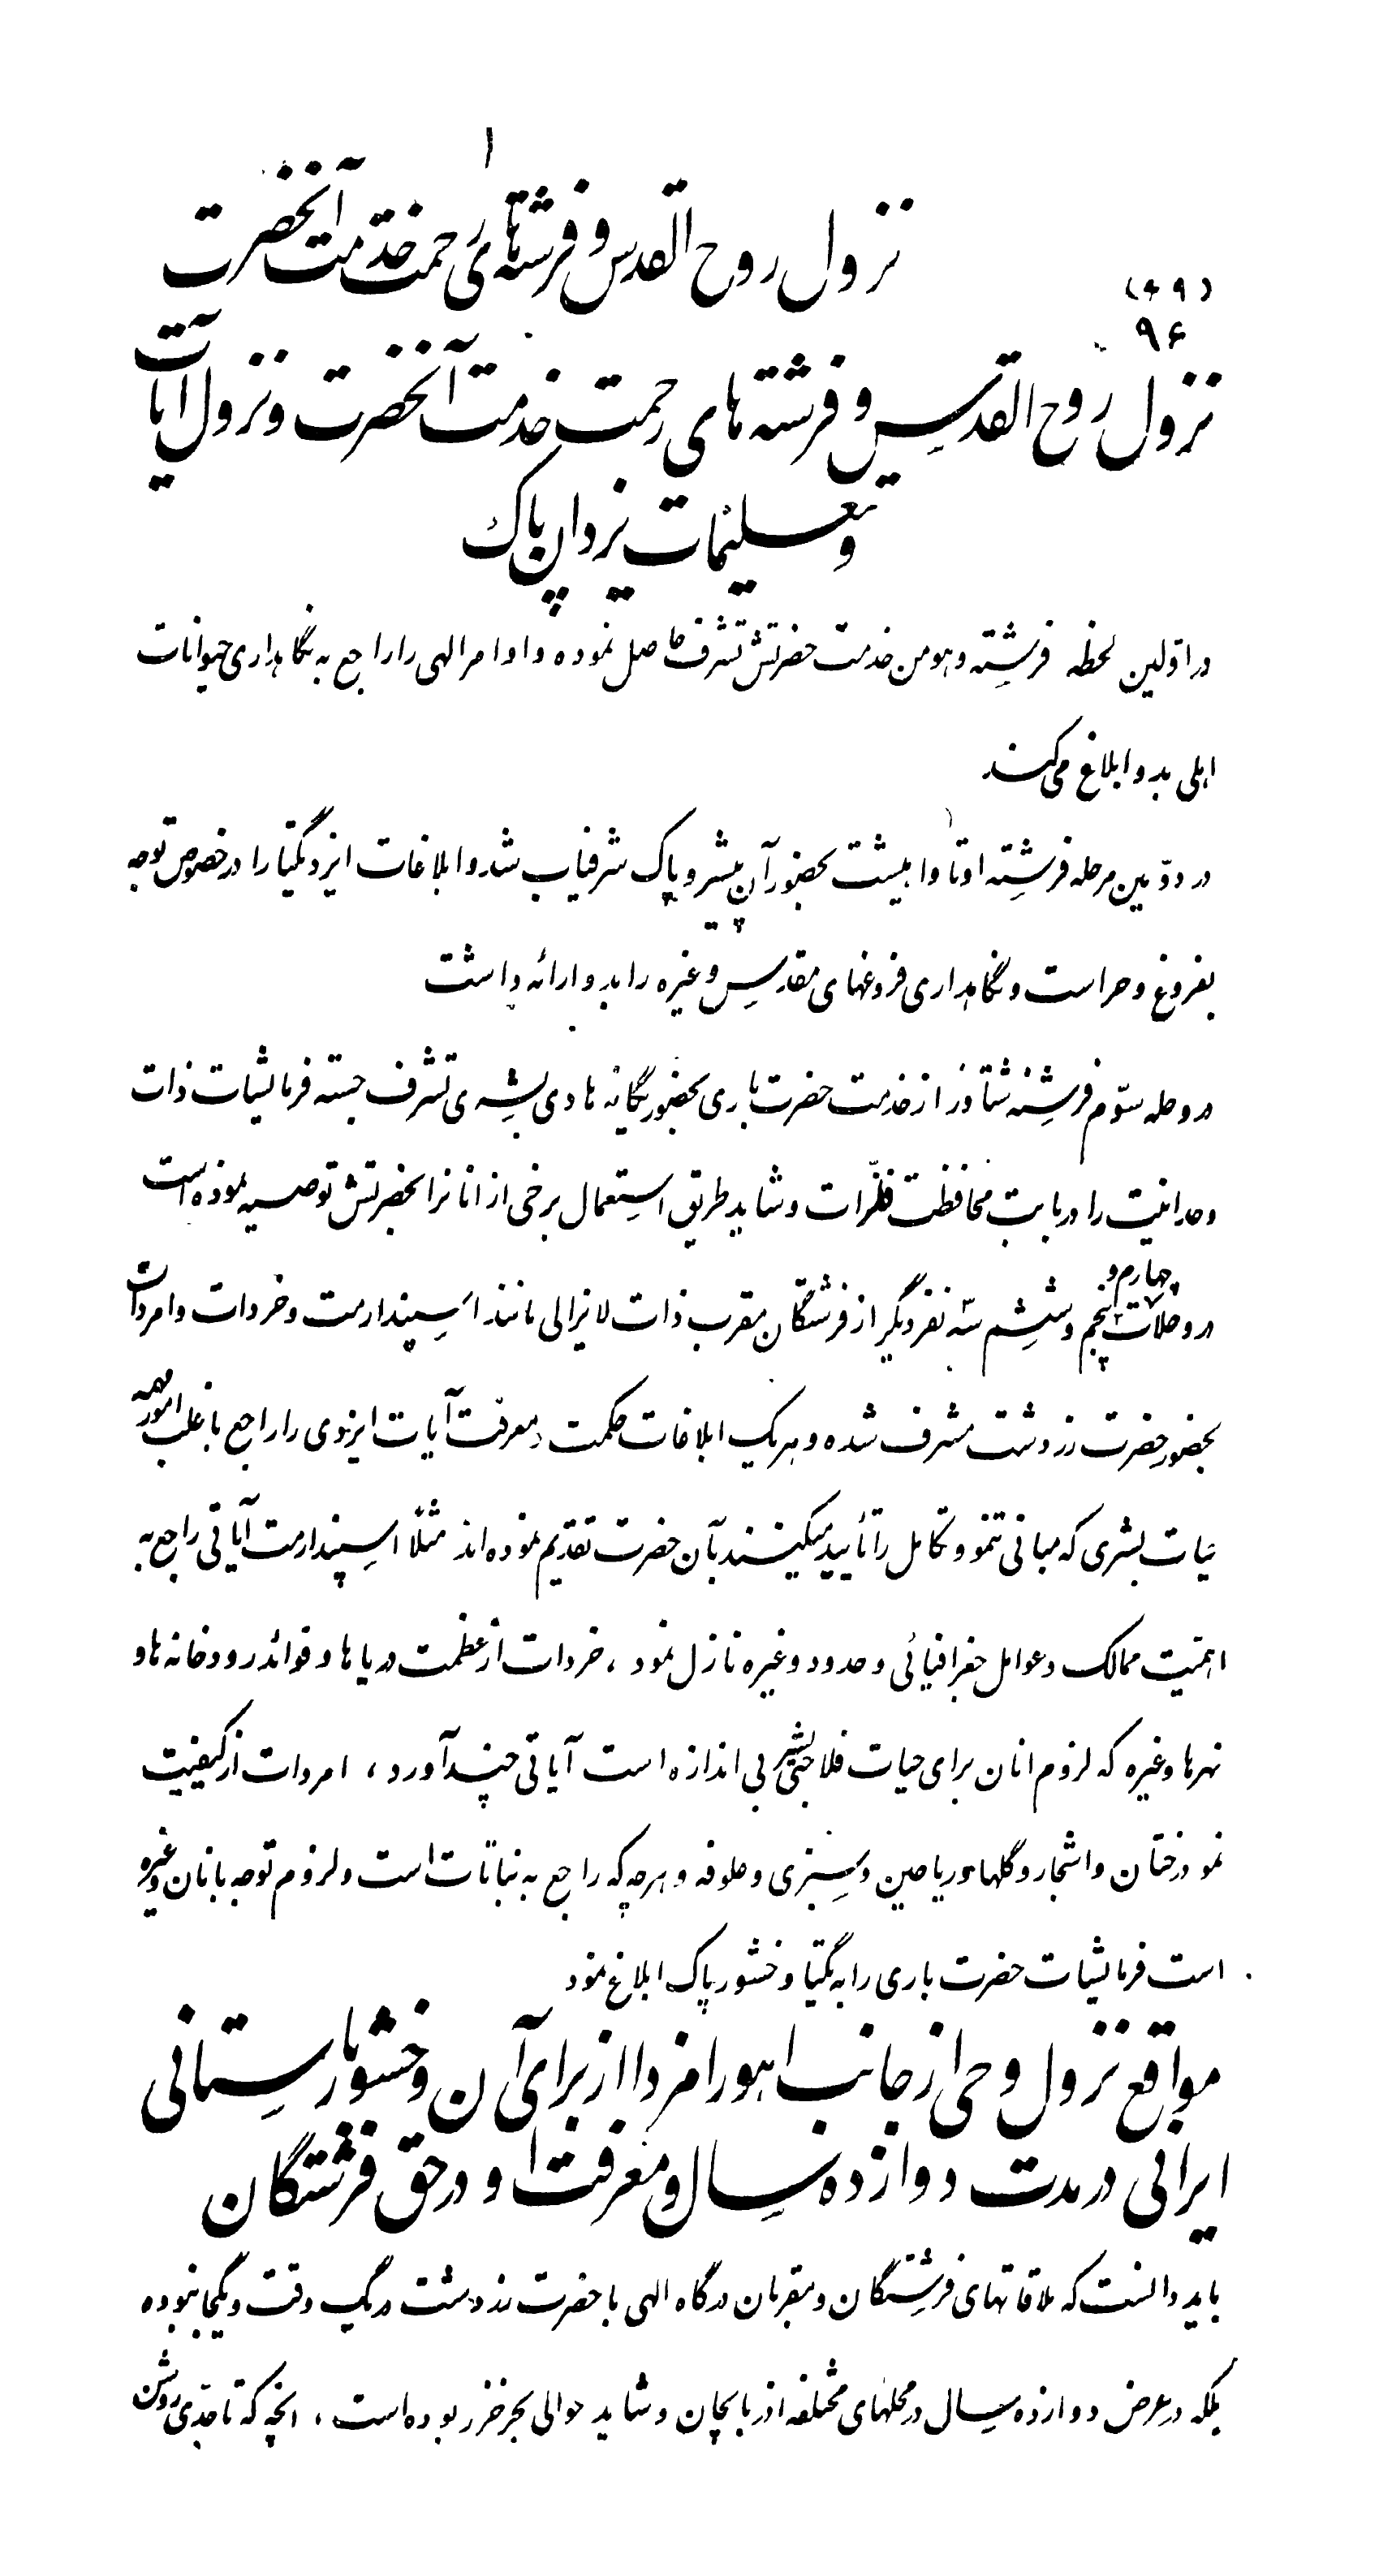 ۱
نزول روح القدس و فرشته‌های رحمت خدمت آنحضرت
(۴۹)
۹۶
نزول روح القدس و فرشته های رحمت خدمت آنحضرت و نزول آیات
و تعلیمات یزدان پاک
در اولین لحظه فرشته وهومن خدمت حضرتش تشرف حاصل نموده و اوامر الهی را راجع به نگاهداری حیوانات
اهلی بدو ابلاغ می کند
در دوّمین مرحله فرشته اوتا وا بیشت بحضور آن پیشرو پاک شرفیاب شد و ابلاغات ایزد یکتا را در خصوص توجه
بفروغ و حراست و نگاهداری فروغهای مقدس و غیره را بدو ارائه داشت
در وحله سوّم فرشته شتاور از خدمت حضرت باری بحضور یگانه هادی بشری تشرف جسته فرمایشات ذات
وحدانیت را در بابت محافظت فلزّات و شاید طریق استعمال برخی از انانرا بحضرتش توصیه نموده است
در وحلات چهارم و پنجم و ششم سه نفر دیگر از فرشتگان مقرب ذات لایزالی مانند اسپندارمت و خردات و امردات
بحضور حضرت زردشت مشرف شده و هریک ابلاغات حکمت و معرفت آیات ایزدی را راجع باغلب امور مهمه
نیات بشری که مبانی تنمو و تکامل را تأیید میکنند بآن حضرت تقدیم نموده اند مثلاً اسپندارمت آیاتی راجع به
اهمیت ممالک و عوامل جغرافیائی و حدود و غیره نازل نمود ، خردات از عظمت دریا ها و فوائد رودخانه ها و
نهرها و غیره که لزوم انان برای حیات فلاحتی بشر بی اندازه است آیاتی چند آورد ، امردات از کیفیت
نمو درختان و اشجار و گلها و ریاحین و سبزی و علوفه و هرچه که راجع به نباتات است و لزوم توجه بانان و غیره
است فرمایشات حضرت باری را به یکتا وخشور پاک ابلاغ نمود
مواقع نزول وحی از جانب اهورامزدا از برای آن وخشور باستانی
ایرانی در مدت دوازده سال و معرفت او در حق فرشتگان
باید دانست که ملاقاتهای فرشتگان و مقربان درگاه الهی با حضرت زردشت در یک وقت و یکجا نبوده
بلکه در عرض دوازده سال در محلهای مختلفه اذربایجان و شاید حوالی بحر خزر بوده است ، انچه که تا حدّی روشن